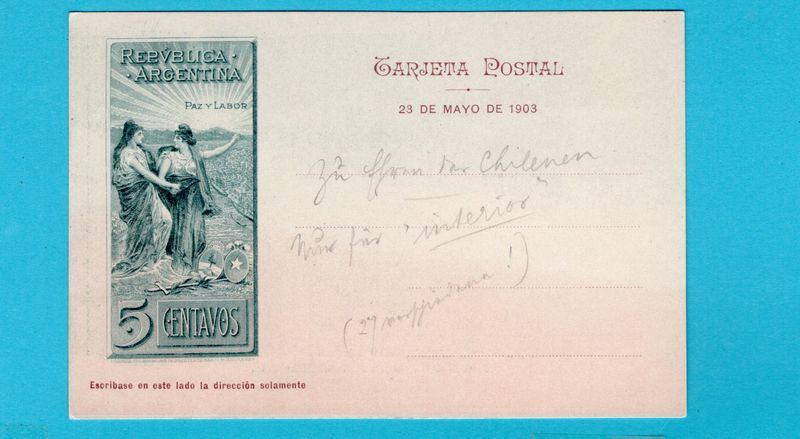 REPVBLICA ·
· ARGENTINA
PAZ Y LABOR
5 CENTAVOS
Escribase en este lado la dirección solamente
TARJETA POSTAL
23 DE MAYO DE 1903
Zu Ehren der Chilenen
Nur für "interior"
(27 verschiedene!)